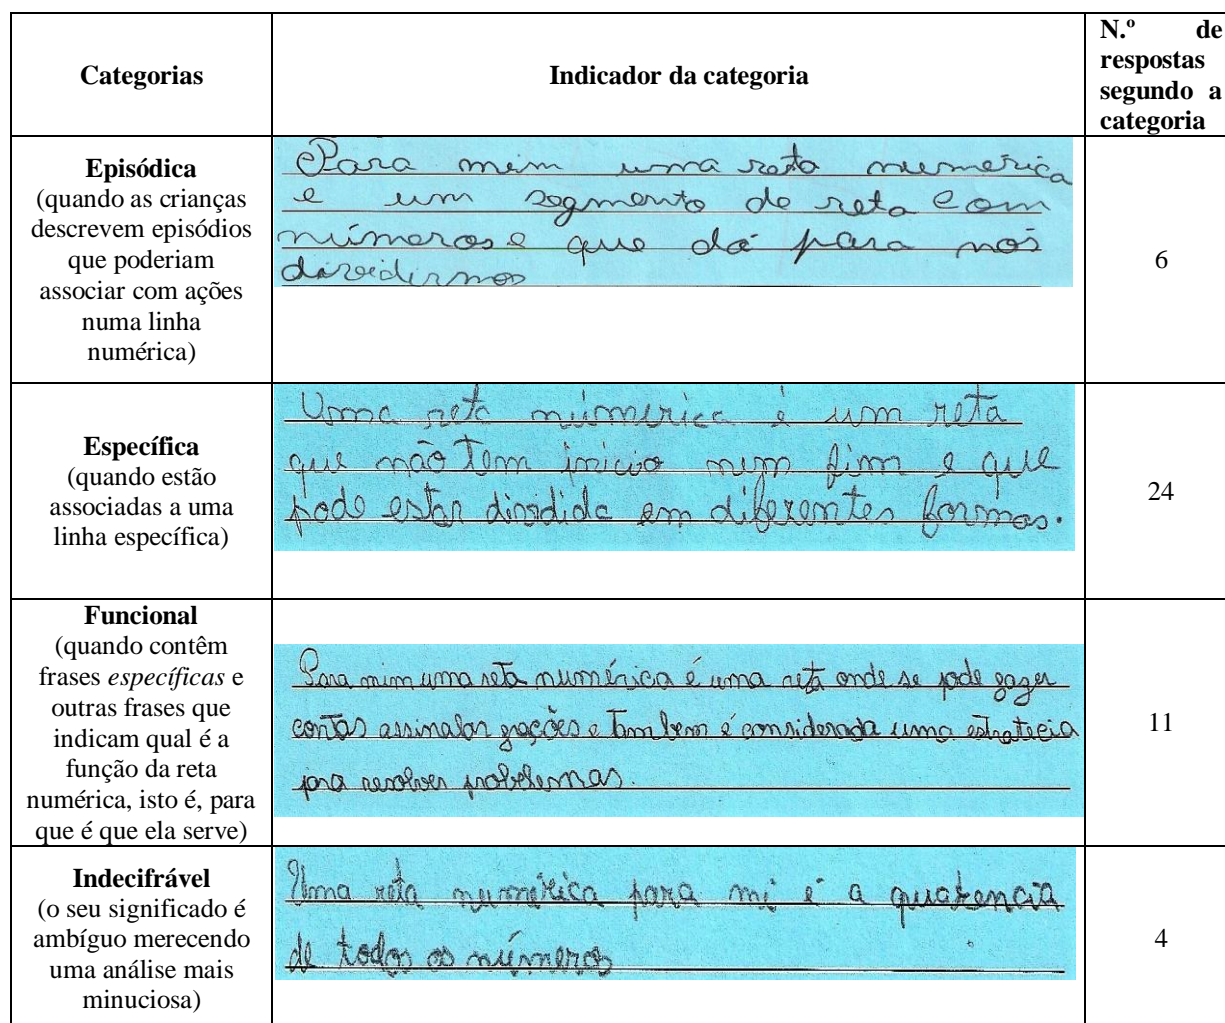 Categorias
Indicador da categoria
N.º de
respostas
segundo a
categoria
Episódica
(quando as crianças
descrevem episódios
que poderiam
associar com ações
numa linha
numérica)
Para mim uma reta numérica
e um segmento de reta com
números e que dá para nós
dividirmos
6
Específica
(quando estão
associadas a uma
linha específica)
Uma reta númerica é um reta
que não tem inicio nem fim e que
pode estar dividida em diferentes formas.
24
Funcional
(quando contêm
frases específicas e
outras frases que
indicam qual é a
função da reta
numérica, isto é, para
que é que ela serve)
Para mim uma reta numérica é uma reta onde se pode fazer
contas assinalar frações e tambem é considerada uma estratecia
para resolver problemas.
11
Indecifrável
(o seu significado é
ambíguo merecendo
uma análise mais
minuciosa)
Uma reta numérica para mi é a
de todos os números
4